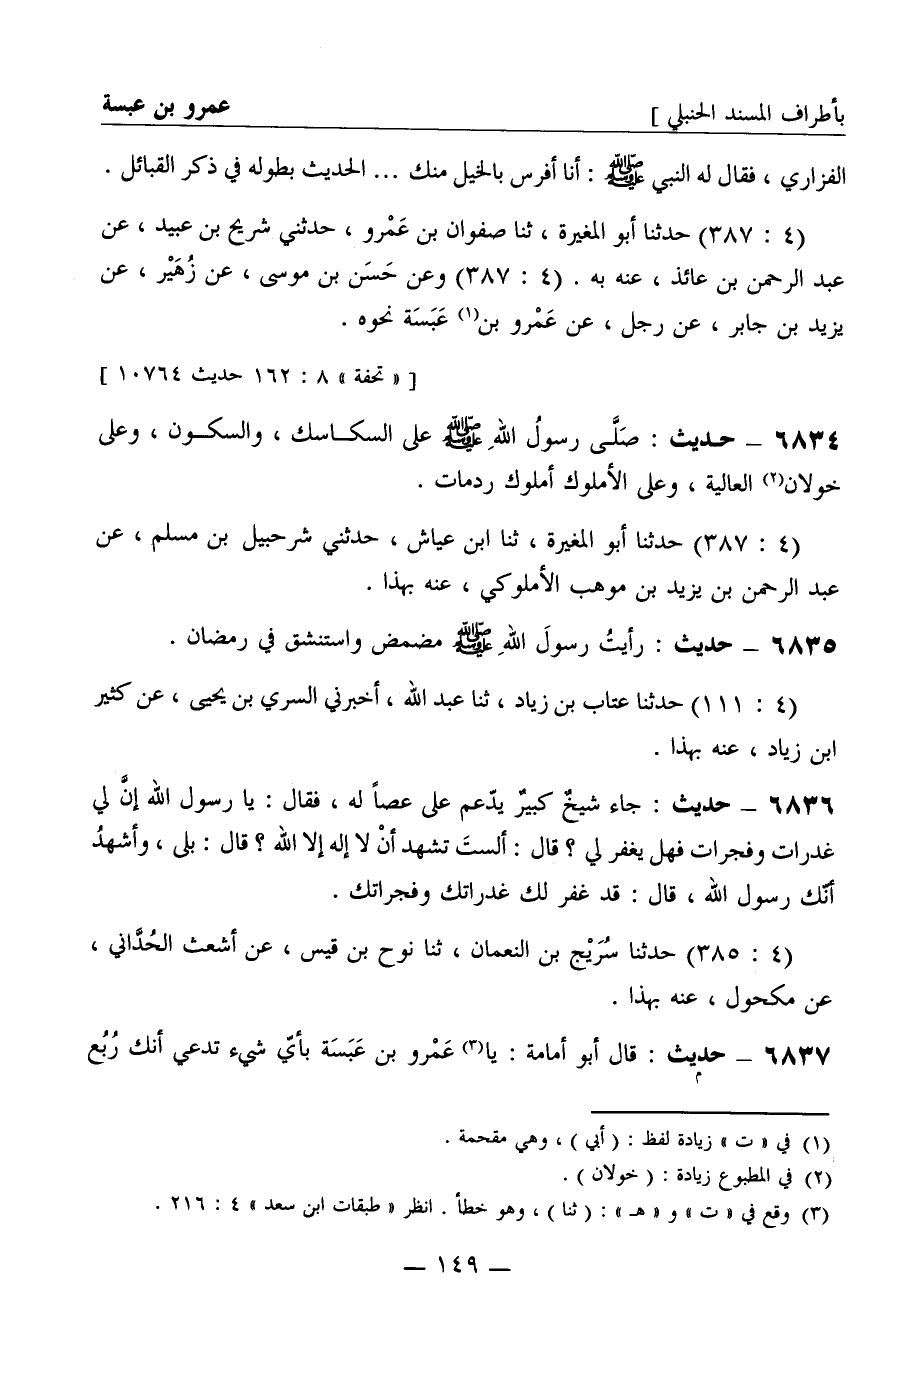 بأطراف المسند الحنبلي ] عمرو بن عبسة
الفزاري ، فقال له النبي ﷺ : أنا أفرس بالخيل منك ... الحديث بطوله في ذكر القبائل .
(٤ : ٣٨٧) حدثنا أبو المغيرة ، ثنا صفوان بن عَمْرو ، حدثني شريح بن عبيد ، عن
عبد الرحمن بن عائذ ، عنه به . (٤ : ٣٨٧) وعن حَسَن بن موسى ، عن زُهَيْر ، عن
يزيد بن جابر ، عن رجل ، عن عَمْرو بن(١) عَبَسَة نحوه .
[ « تحفة » ٨ : ١٦٢ حديث ١٠٧٦٤ ]
٦٨٣٤ – حديث : صَلَّى رسولُ اللهِ ﷺ على السكاسك ، والسكون ، وعلى
خولان(٢) العالية ، وعلى الأملوك أملوك ردمات .
(٤ : ٣٨٧) حدثنا أبو المغيرة ، ثنا ابن عياش ، حدثني شرحبيل بن مسلم ، عن
عبد الرحمن بن يزيد بن موهب الأملوكي ، عنه بهذا .
٦٨٣٥ – حديث : رأيتُ رسولَ اللهِ ﷺ مضمض واستنشق في رمضان .
(٤ : ١١١) حدثنا عتاب بن زياد ، ثنا عبد الله ، أخبرني السري بن يحيى ، عن كثير
ابن زياد ، عنه بهذا .
٦٨٣٦ – حديث : جاء شيخٌ كبيرٌ يدّعم على عصاً له ، فقال : يا رسول الله إنَّ لي
غدرات وفجرات فهل يغفر لي ؟ قال : ألستَ تشهد أنْ لا إله إلا الله ؟ قال : بلى ، وأشهدُ
أنّك رسول الله ، قال : قد غفر لك غدراتك وفجراتك .
(٤ : ٣٨٥) حدثنا سُرَيْج بن النعمان ، ثنا نوح بن قيس ، عن أشعث الحُدَّاني ،
عن مكحول ، عنه بهذا .
٦٨٣٧ – حديث : قال أبو أمامة : يا(٣) عَمْرو بن عَبَسَة بأيّ شيء تدعي أنك رُبُع
م
(١) في « ت » زيادة لفظ : ( أبي ) ، وهي مقحمة .
(٢) في المطبوع زيادة : ( خولان ) .
(٣) وقع في « ت » و « هـ » : ( ثنا ) ، وهو خطأ . انظر « طبقات ابن سعد » ٤ : ٢١٦ .
– ١٤٩ –